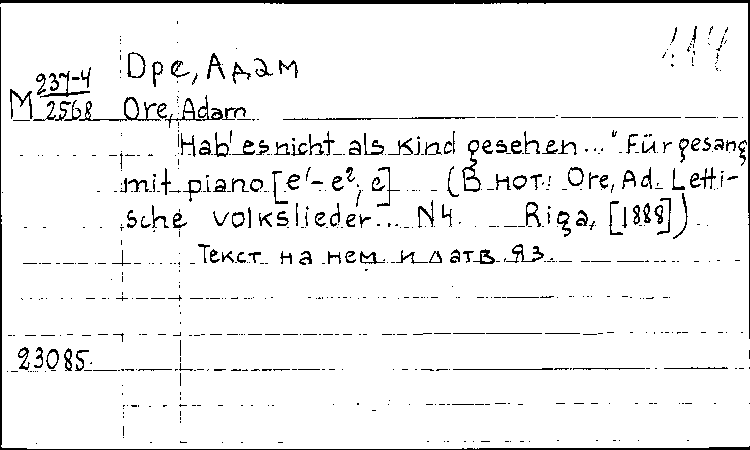 114
Оре, Адам
M 237-4
2568
Ore, Adam
Hab' es nicht als Kind gesehen..." Für gesang
mit piano [e'-e², e] (В нот: Ore, Ad. Letti-
sche volkslieder... N4. Riga, [1888])
Текст на нем. и латв. яз.
23085.